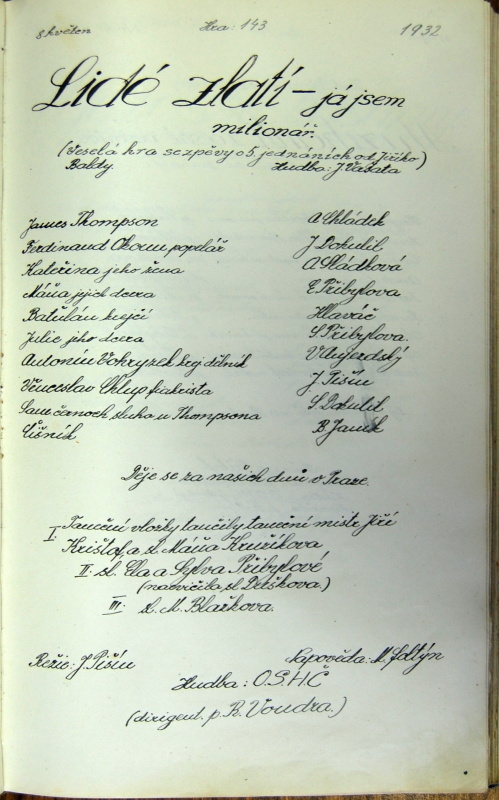 8 květen Hra: 143 1932
Lidé zlatí – já jsem
milionář.
(Veselá hra se zpěvy o 5 jednáních od Jiřího)
Baldy. Hudba: J Vašata
James Thompson A Chládek
Ferdinand Okoun popelář J Dokulil
Kateřina jeho žena A Sládková
Máňa jejich dcera E Přibylova
Batulán krejčí Hlaváč
Julie jeho dcera S Přibylova.
Antonín Vokryzek krej dělník V Ungerdský
Věnceslav Chlup fiakrista J Pišin
Sam černoch sluha u Thompsona S Dokulil
Číšník B Janík
Děje se za našich dnů v Praze.
I. Taneční vložky tančily taneční mistr Jiří
Krištof, a sl. Máňa Kružíkova
II: sl. Ela a Sylva Přibylové
(nacvičila sl Drážkova.)
III: sl. M. Blažkova.
Režie: J. Pišin Napověda: M. Soltýn
Hudba: O.S.H.Č
(dirigent. p. R. Voudra.)